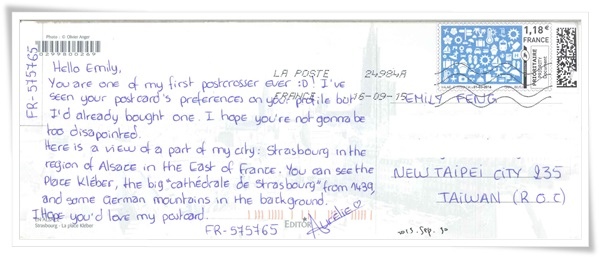 Photo : © Olivier Anger
FR-575765
Hello Emily,
You are one of my first postcrosser ever :D I've
seen your postcard's preferences on your profile but
I'd already bought one. I hope you're not gonna be
too disapointed.
Here is a view of a part of my city: Strasbourg in the
region of Alsace in the East of France. You can see the
Place Kléber, the big "cathédrale de Strasbourg" from 1439,
and some German mountains in the background.
I hope you'd love my postcard.
Strasbourg - La place Kléber
FR-575765
EDITOR
Aurélie
LA POSTE 24984A
FRANCE 16-09-15
1,18€
FRANCE
PRIORITAIRE
EMILY FENG
NEW TAIPEI CITY 235
TAIWAN (R.O.C)
2015. Sep. 30